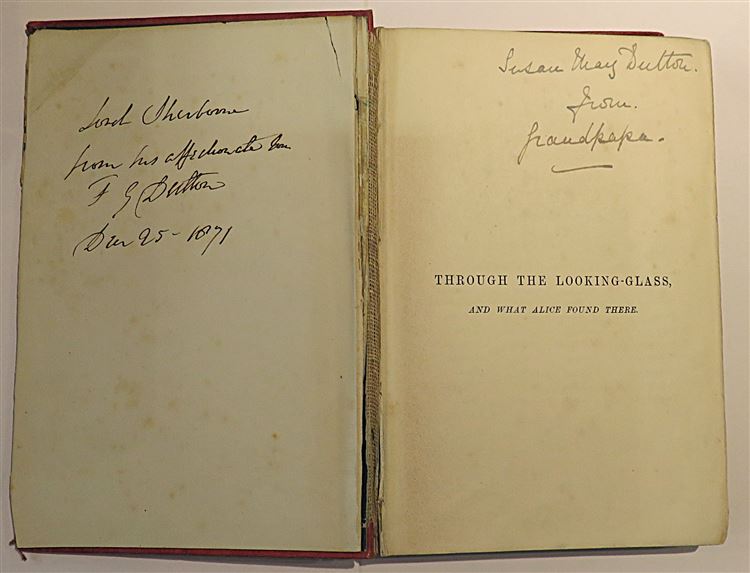 Lord Sherborne
from his affectionate son
F G Dutton
Dec 25 - 1871
Susan May Dutton.
from.
Grandpapa.
THROUGH THE LOOKING-GLASS,
AND WHAT ALICE FOUND THERE.